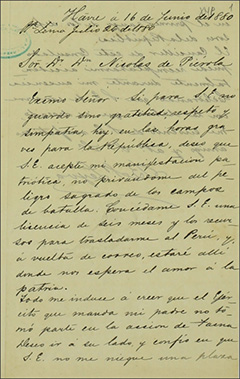 Havre à 16 de Junio de 1880
Lima Julio 26 de 1880
A
Sor. Dr. Dn. Nicolas de Pierola
Exmo Señor: Si para S.E. no
guardo sino gratitud, respeto y
simpatía hoy en las horas gra-
ves para la República, deseo que
S.E. acepte mi manifestacion pa-
triótica, no privándome del pe-
ligro sagrado de los campos
de batalla. Concédame S.E. una
licencia de seis meses y los recur-
sos para trasladarme al Perú. Y
à vuelta de correo, estaré alli
donde nos espera el amor à la
patria.
Todo me induce à creer que el Ejér-
cito que manda mi padre no to-
mó parte en la accion de Tacna
Deseo ir à su lado, y confío en que
S.E. no me niegue una plaza